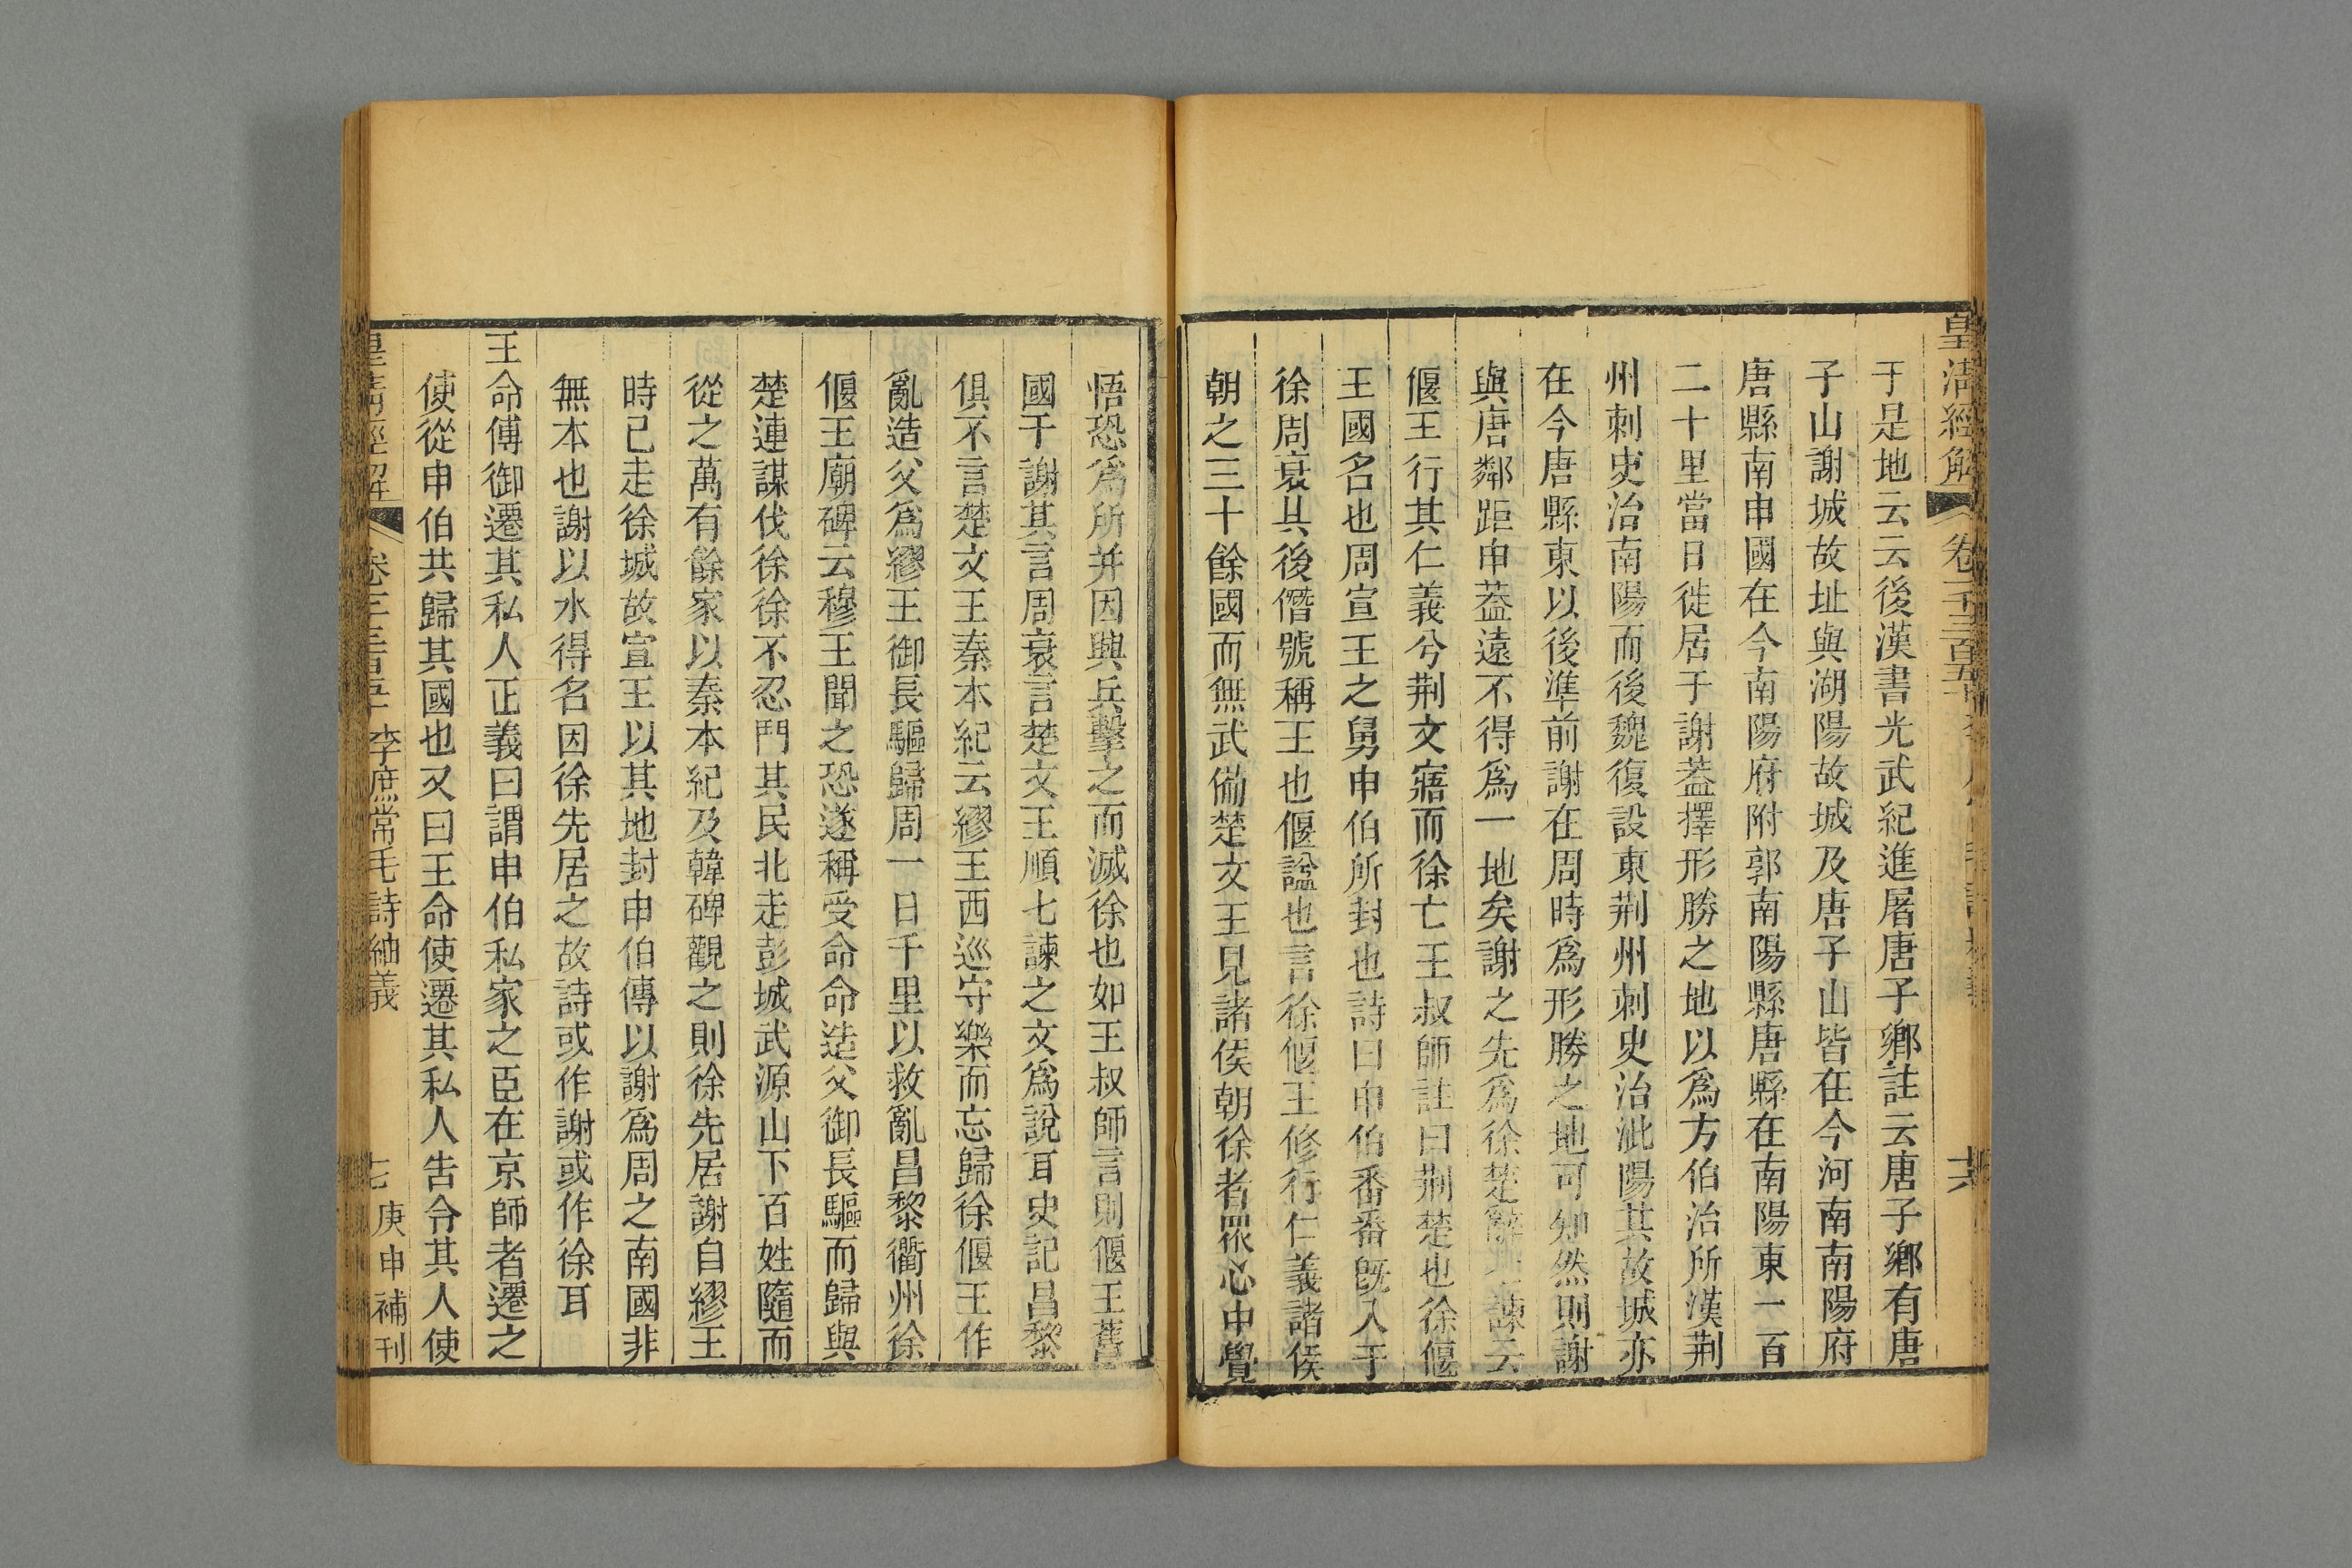 皇清經解 卷一千三百五十 六
于是地云云後漢書光武紀進屠唐子鄉註云唐子鄉有唐
子山謝城故址與湖陽故城及唐子山皆在今河南南陽府
唐縣南申國在今南陽府附郭南陽縣唐縣在南陽東一百
二十里當日徙居于謝葢擇形勝之地以為方伯治所漢荆
州刺史治南陽而後魏復設東荆州刺史治泚陽其故城亦
在今唐縣東以後準前謝在周時為形勝之地可知然則謝
與唐鄰距申葢遠不得為一地矣謝之先為徐楚辭七諫云
偃王行其仁義兮荆文寤而徐亡王叔師註曰荆楚也徐偃
王國名也周宣王之舅申伯所封也詩曰申伯番番旣入于
徐周衰其後僭號稱王也偃諡也言徐偃王修行仁義諸侯
朝之三十餘國而無武備楚文王見諸侯朝徐者眾心中覺
悟恐為所并因興兵擊之而滅徐也如王叔師言則偃王舊
國于謝其言周衰言楚文王順七諫之文為說耳史記昌黎
俱不言楚文王秦本紀云繆王西巡守樂而忘歸徐偃王作
亂造父為繆王御長驅歸周一日千里以救亂昌黎衢州徐
偃王廟碑云穆王聞之恐遂稱受命命造父御長驅而歸與
楚連謀伐徐徐不忍鬥其民北走彭城武源山下百姓隨而
從之萬有餘家以秦本紀及韓碑觀之則徐先居謝自繆王
時已走徐城故宣王以其地封申伯傳以謝為周之南國非
無本也謝以水得名因徐先居之故詩或作謝或作徐耳
王命傅御遷其私人正義曰謂申伯私家之臣在京師者遷之
使從申伯共歸其國也又曰王命使遷其私人告令其人使
皇清經解 李庶常毛詩紬義 七 庚申補刊